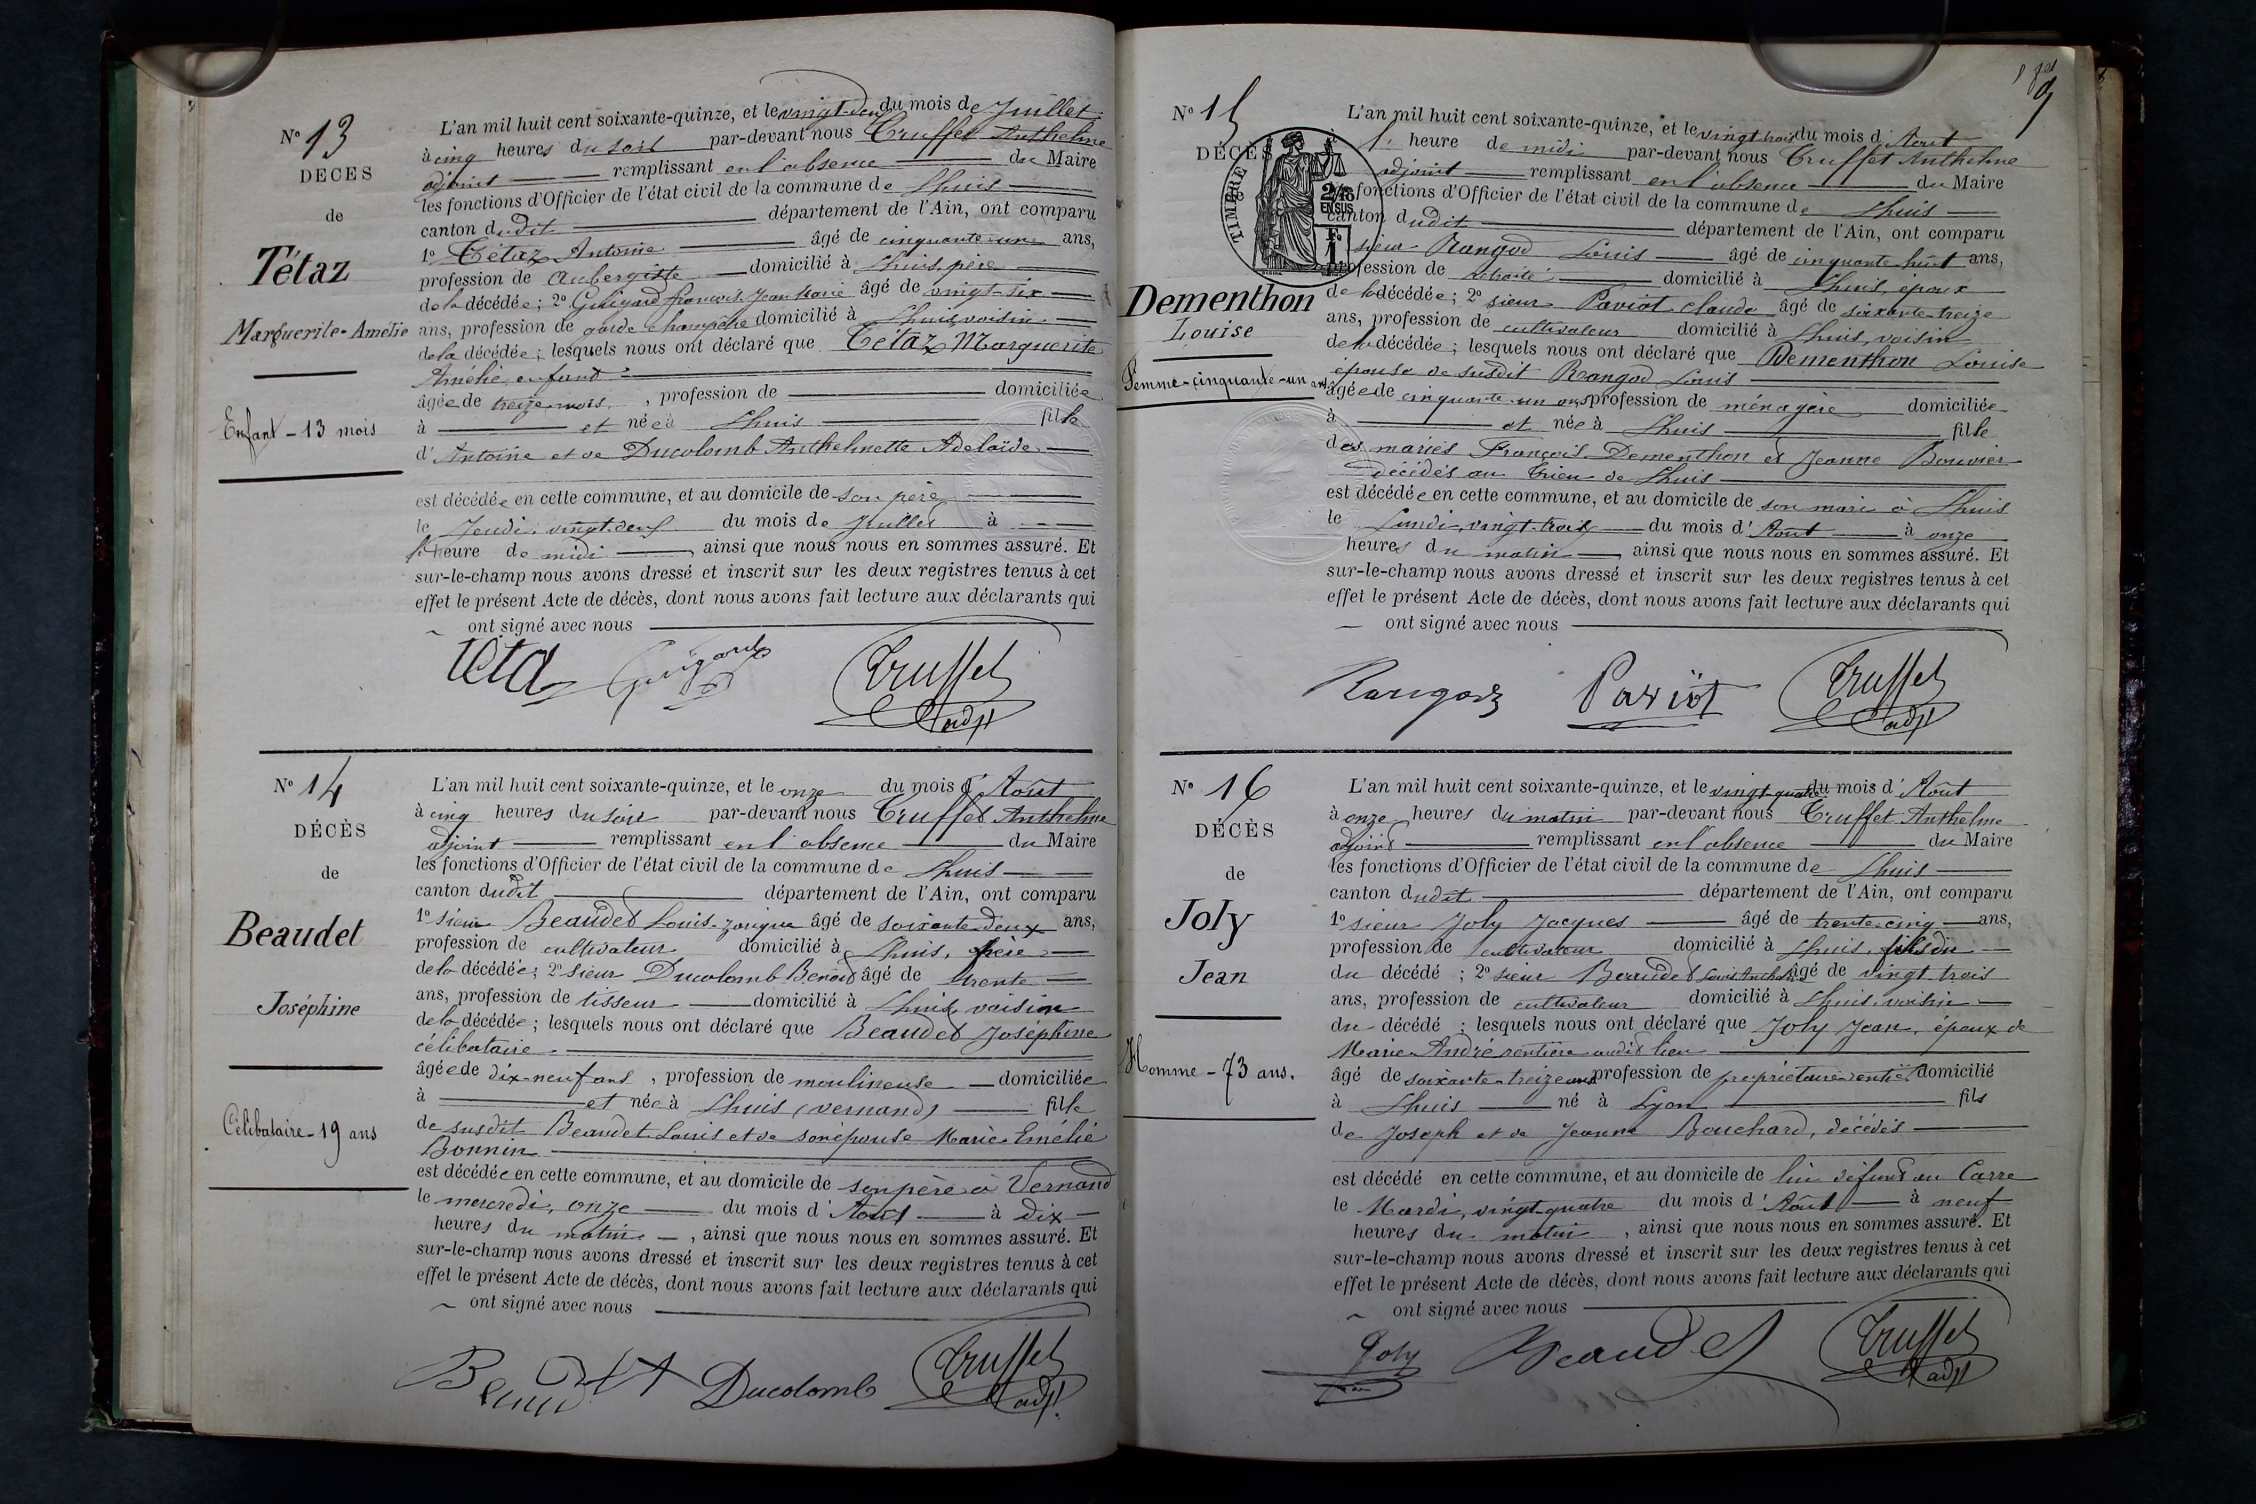 N° 13
DÉCÈS
de
Tétaz
Marguerite-Amélie
Enfant - 13 mois
L'an mil huit cent soixante-quinze, et le du mois de Juillet
à cinq heures du soir par-devant nous Truffet Anthelme
adjoint remplissant en l'absence du Maire
les fonctions d'Officier de l'état civil de la commune de Lhuis
canton dudit département de l'Ain, ont comparu
1° Tétaz Antoine âgé de cinquante-un ans,
profession de aubergiste domicilié à Lhuis, père
de la décédée; 2° Guigard françois Jean Marie âgé de vingt-six
ans, profession de garde champêtre domicilié à Lhuis, voisin
de la décédée; lesquels nous ont déclaré que Tétaz Marguerite
Amélie, enfant
âgée de treize mois, profession de domiciliée
à et née à Lhuis fille
d'Antoine et de Ducolomb Anthelmette Adelaïde
est décédée en cette commune, et au domicile de son père
le Jeudi, du mois de Juillet à
1. heure de midi, ainsi que nous nous en sommes assuré. Et
sur-le-champ nous avons dressé et inscrit sur les deux registres tenus à cet
effet le présent Acte de décès, dont nous avons fait lecture aux déclarants qui
ont signé avec nous
téta Guigard Truffet adjt
N° 14
DÉCÈS
de
Beaudet
Joséphine
Célibataire - 19 ans
L'an mil huit cent soixante-quinze, et le onze du mois d'Août
à cinq heures du soir par-devant nous Truffet Anthelme
adjoint remplissant en l'absence du Maire
les fonctions d'Officier de l'état civil de la commune de Lhuis
canton dudit département de l'Ain, ont comparu
1° sieur Beaudet Louis âgé de soixante deux ans,
profession de cultivateur domicilié à Lhuis, père
de la décédée; 2° sieur Ducolomb Benoit âgé de trente
ans, profession de tisseur domicilié à Lhuis, voision
de la décédée; lesquels nous ont déclaré que Beaudet Joséphine
célibataire
âgée de dix-neuf ans, profession de moulineuse domiciliée
à et née à Lhuis (vernand) fille
de susdit Beaudet Louis et de son épouse Marie Emélié
Bonnin
est décédée en cette commune, et au domicile de son père à Vernand
le mercredi, onze du mois d'Aout à dix
heures du matin, ainsi que nous nous en sommes assuré. Et
sur-le-champ nous avons dressé et inscrit sur les deux registres tenus à cet
effet le présent Acte de décès, dont nous avons fait lecture aux déclarants qui
ont signé avec nous
Ducolomb Truffet adjt
9
N° 15
DÉCÈS
TIMBRE
2/10 EN SUS
Dementhon
Louise
Femme - cinquante-un ans
L'an mil huit cent soixante-quinze, et le vingt trois du mois d'Aout
1. heure de midi par-devant nous Truffet Anthelme
adjoint remplissant en l'absence du Maire
fonctions d'Officier de l'état civil de la commune de Lhuis
canton dudit département de l'Ain, ont comparu
sieur Rangod Louis âgé de cinquante huit ans,
profession de retraité domicilié à Lhuis, époux
de la décédée; 2° sieur Paviot claude âgé de soixante-treize
ans, profession de cultivateur domicilié à Lhuis, voisin
de la décédée; lesquels nous ont déclaré que Dementhon Louise
épouse de susdit Rangod Louis
âgée de cinquante-un ans profession de ménagère domiciliée
à et née à Lhuis fille
des mariés François Dementhon et Jeanne Bouvier
décédés au Crieu de Lhuis
est décédée en cette commune, et au domicile de son mari à Lhuis
le Lundi, vingt-trois du mois d'Aout à onze
heures du matin, ainsi que nous nous en sommes assuré. Et
sur-le-champ nous avons dressé et inscrit sur les deux registres tenus à cet
effet le présent Acte de décès, dont nous avons fait lecture aux déclarants qui
ont signé avec nous
Rangod Paviot Truffet adjt
N° 16
DÉCÈS
de
Joly
Jean
Homme - 73 ans.
L'an mil huit cent soixante-quinze, et le vingt-quatre du mois d'Août
à onze heures du matin par-devant nous Truffet Anthelme
adjoint remplissant en l'absence du Maire
les fonctions d'Officier de l'état civil de la commune de Lhuis
canton dudit département de l'Ain, ont comparu
1° sieur Joly Jacques âgé de trente-cinq ans,
profession de cultivateur domicilié à Lhuis, fils du
du décédé; 2° sieur Louis Anthelme âgé de vingt trois
ans, profession de cultivateur domicilié à Lhuis, voisin
du décédé; lesquels nous ont déclaré que Joly Jean, époux de
Marie André rentière audit lieu
âgé de soixante-treize ans profession de propriétaire rentier domicilié
à Lhuis né à Lyon fils
de Joseph et de Jeanne Bouchard, décédés
est décédé en cette commune, et au domicile de lui défunt au Carre
le Mardi, vingt-quatre du mois d'Août à neuf
heures du matin, ainsi que nous nous en sommes assuré. Et
sur-le-champ nous avons dressé et inscrit sur les deux registres tenus à cet
effet le présent Acte de décès, dont nous avons fait lecture aux déclarants qui
ont signé avec nous
Joly Beaudet Truffet adjt